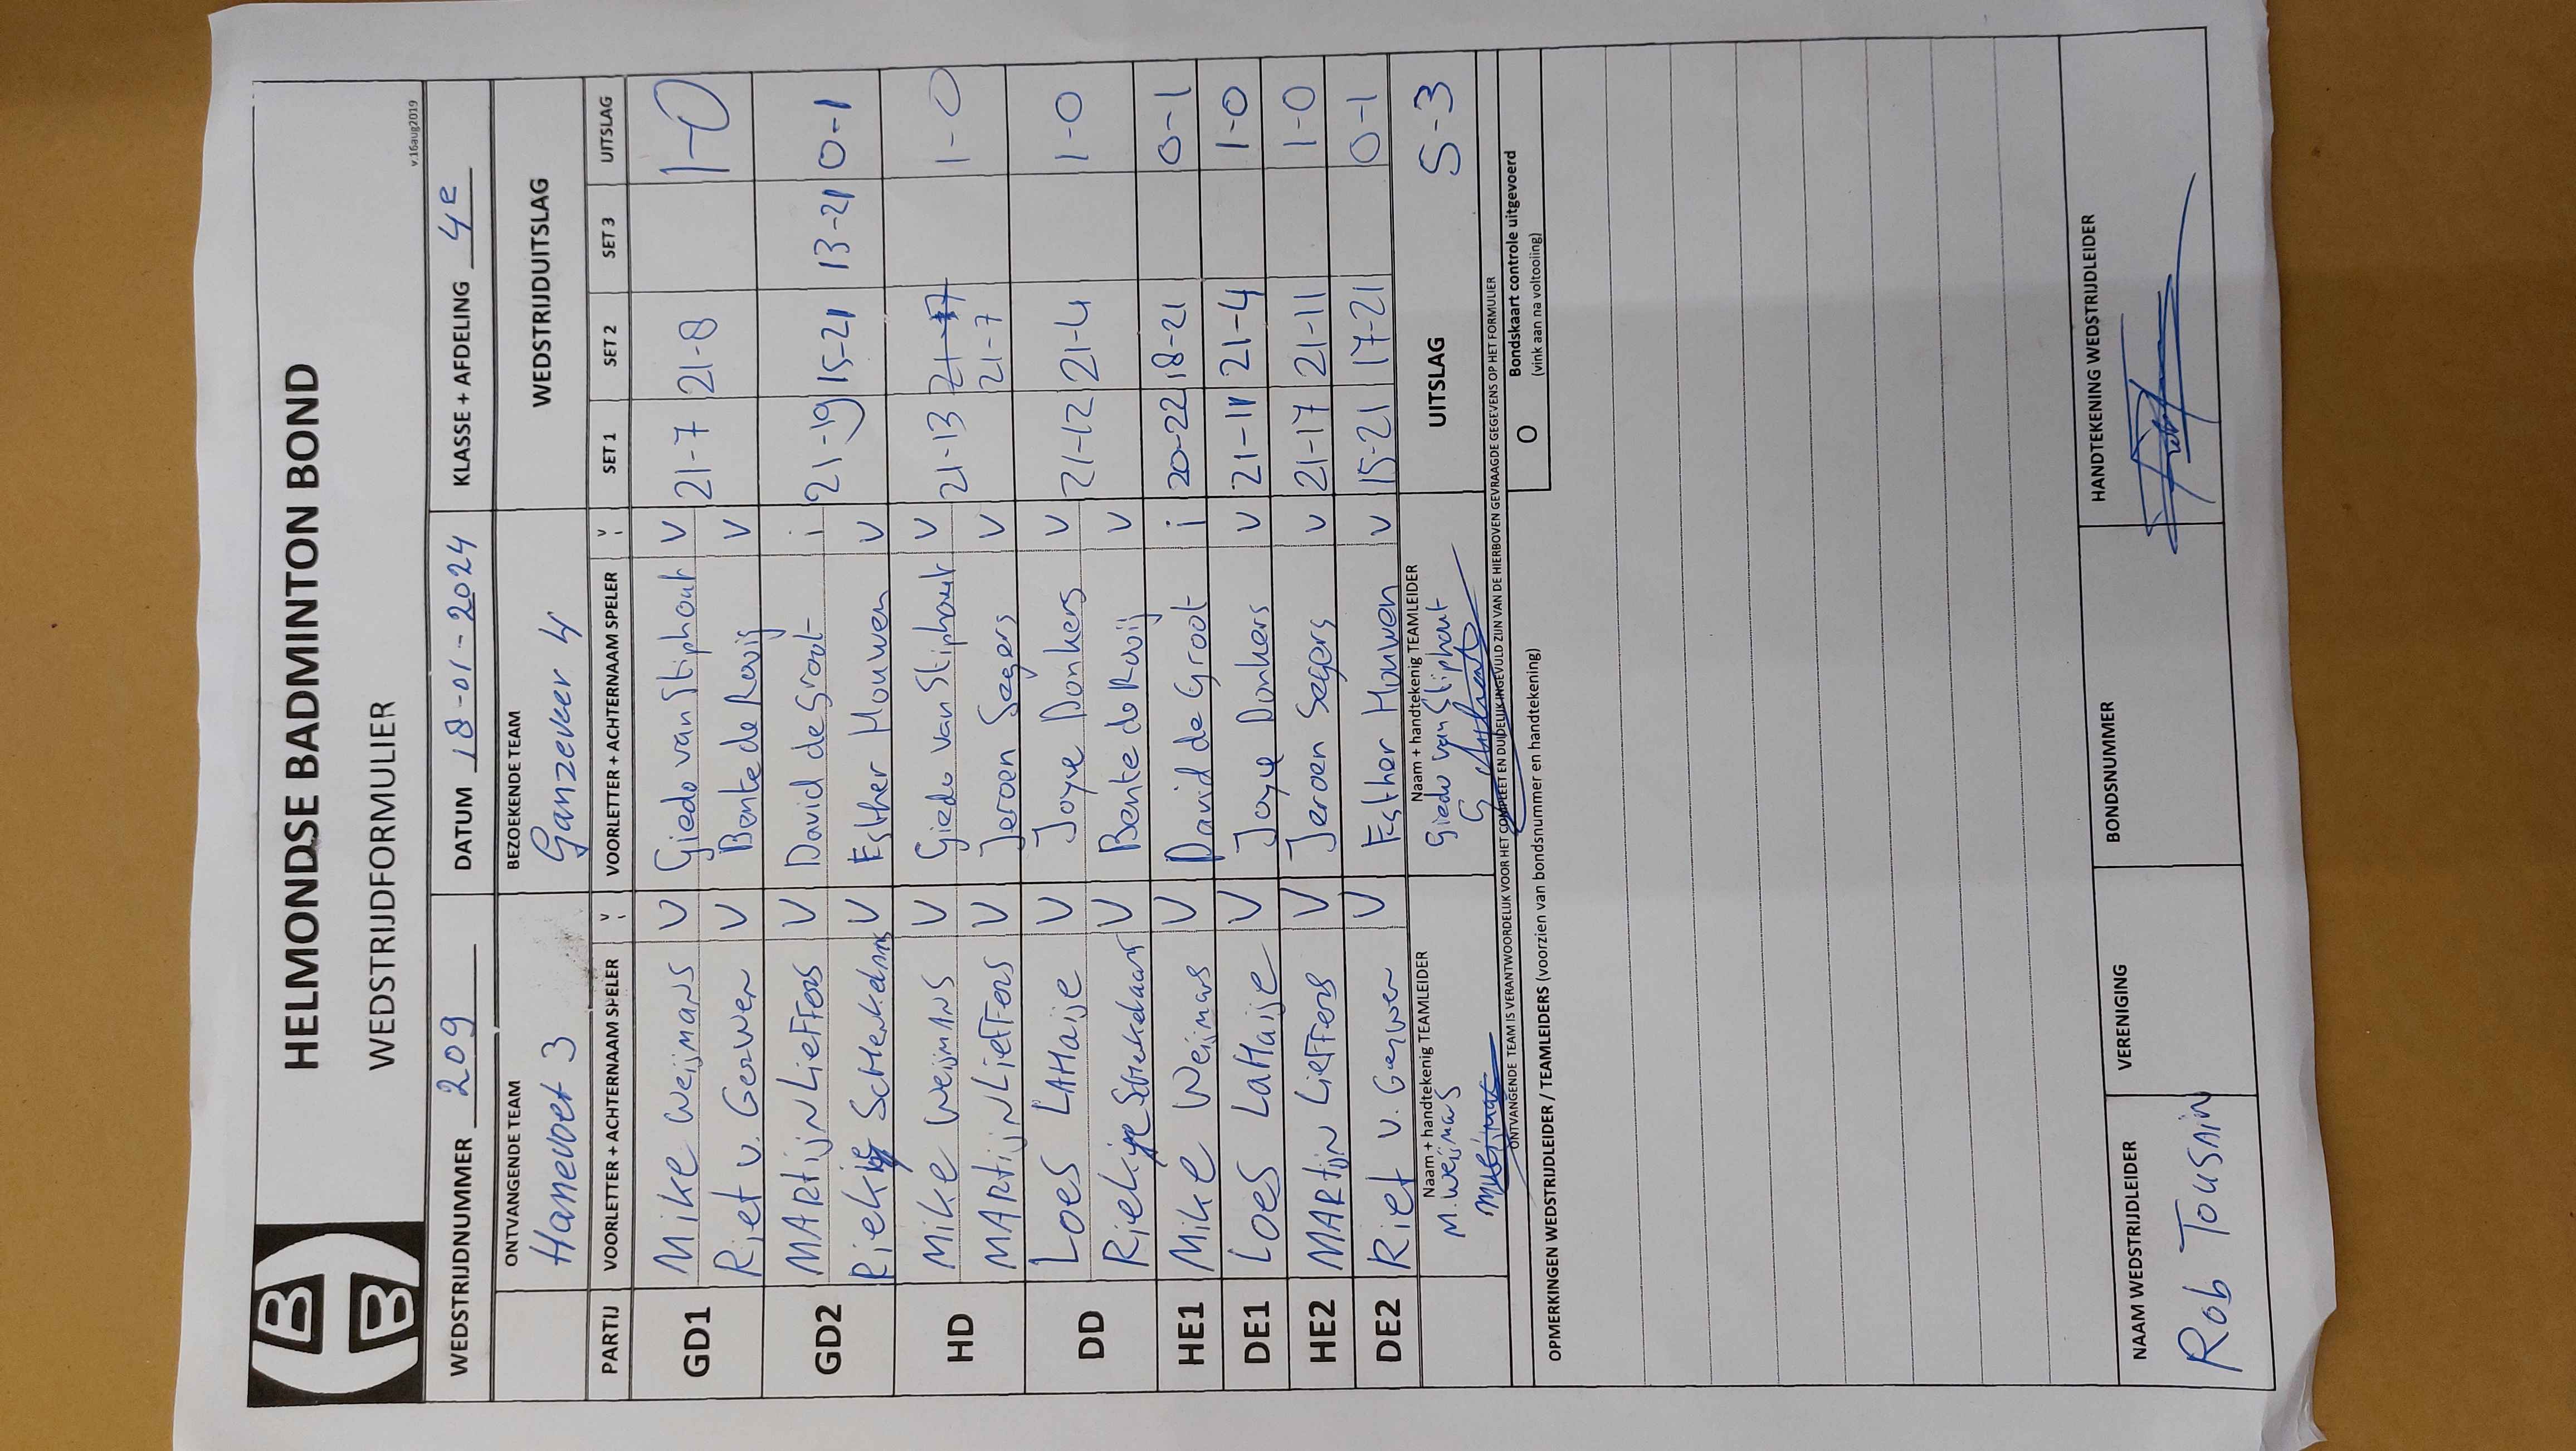 HELMONDSE BADMINTON BOND
WEDSTRIJDFORMULIER
v.16aug2019
WEDSTRIJDNUMMER 209 DATUM 18-01-2024 KLASSE + AFDELING 4e
ONTVANGENDE TEAM BEZOEKENDE TEAM WEDSTRIJDUITSLAG
Hanevoet 3 Ganzeveer 4
PARTIJ VOORLETTER + ACHTERNAAM SPELER V i VOORLETTER + ACHTERNAAM SPELER V i SET 1 SET 2 SET 3 UITSLAG
GD1 Mike Weijmans V Giedo van Stiphout V 21-7 21-8 1-0
Riet v. Gerwen V Bente de Rooij V
GD2 MARtijN LieFFers V David de Groot i 21-19 15-21 13-21 0-1
Riekie Schenkelaars V Esther Mouwen V
HD Mike WeijmANS V Giedo van Stiphout V 21-13 21-17 1-0
MARtijN LieFFers V Jeroen Segers V 21-7
DD Loes LAHaije V Joyce Donkers V 21-12 21-4 1-0
Riekie Schenkelaars V Bente de Rooij V
HE1 Mike Weijmans V David de Groot i 20-22 18-21 0-1
DE1 Loes LaHaije V Joyce Donkers V 21-11 21-4 1-0
HE2 MARtijN LieFFers V Jeroen Segers V 21-17 21-11 1-0
DE2 Riet v. Gerwen V Esther Mouwen V 15-21 17-21 0-1
Naam + handtekenig TEAMLEIDER Naam + handtekenig TEAMLEIDER UITSLAG 5-3
M. Weijmans Giedo van Stiphout
ONTVANGENDE TEAM IS VERANTWOORDELIJK VOOR HET COMPLEET EN DUIDELIJK INGEVULD ZIJN VAN DE HIERBOVEN GEVRAAGDE GEGEVENS OP HET FORMULIER
O Bondskaart controle uitgevoerd
(vink aan na voltooiing)
OPMERKINGEN WEDSTRIJDLEIDER / TEAMLEIDERS (voorzien van bondsnummer en handtekening)
NAAM WEDSTRIJDLEIDER VERENIGING BONDSNUMMER HANDTEKENING WEDSTRIJDLEIDER
Rob Tousain